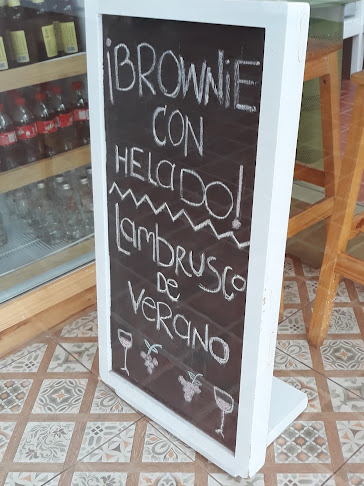 ¡BROWNIE
CON
HELADO!
LAMBRUSCO
DE
VERANO